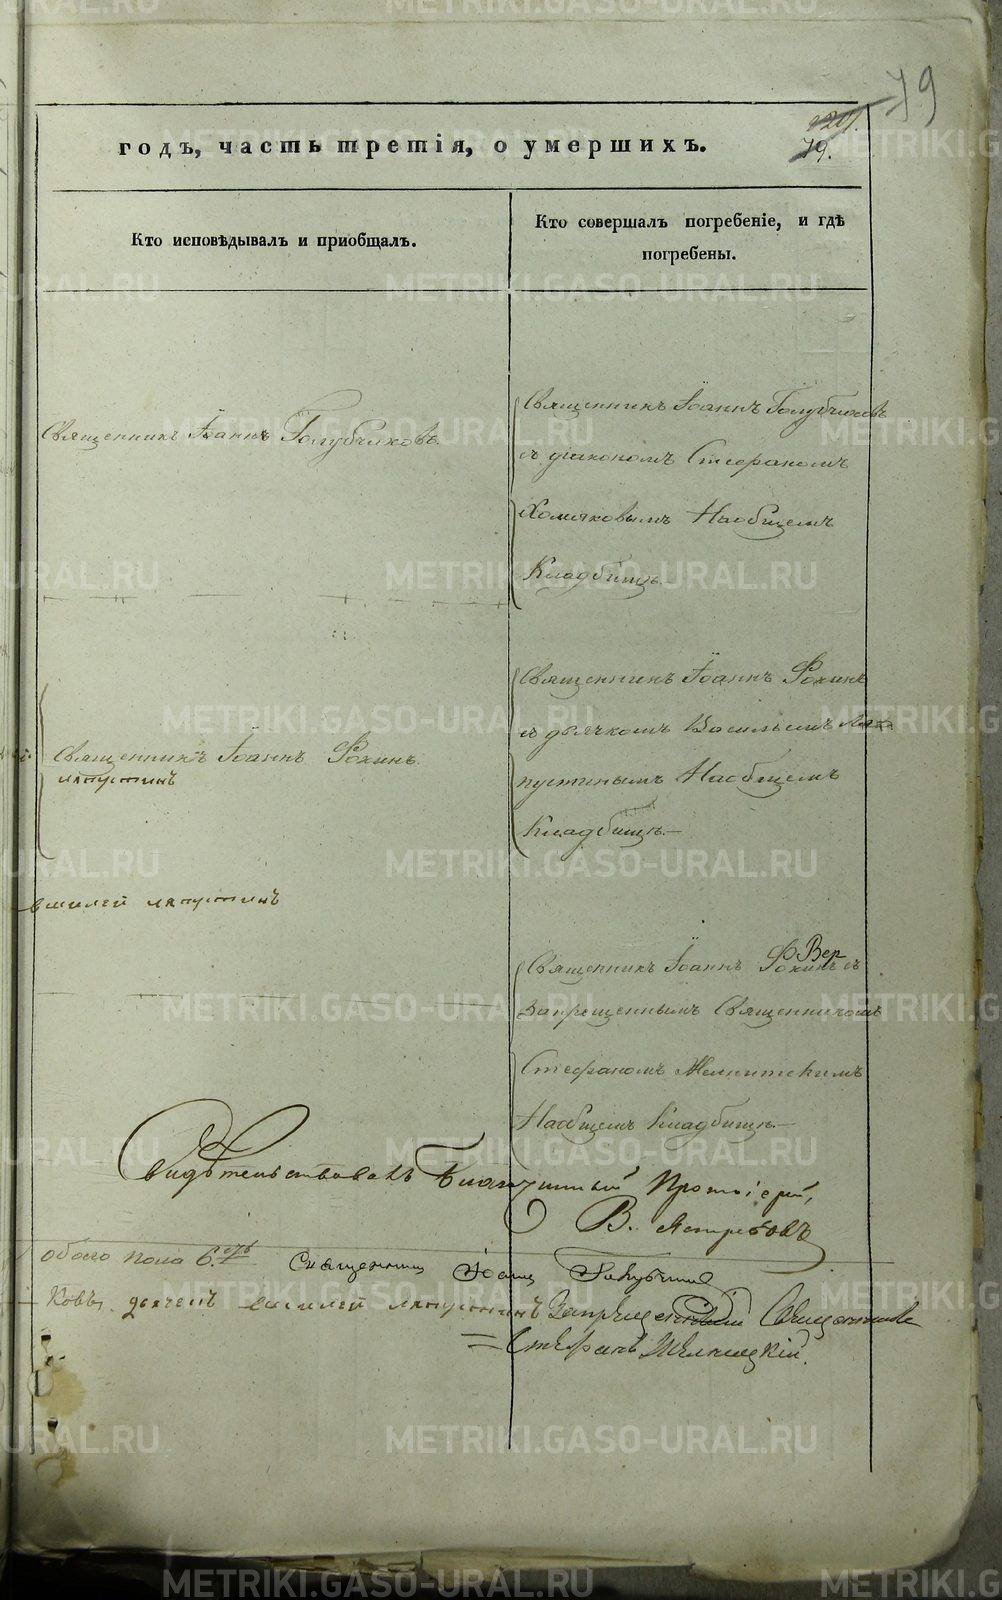 79
годъ, часть третія, о умершихъ.
79.
Кто исповѣдывалъ и пріобщалъ.
Кто совершалъ погребеніе, и гдѣ
погребены.
Священникъ Іоаннъ Голубчиковъ
Священникъ Іоаннъ Голубчиковъ
съ діакономъ Стефаномъ
Хомяковымъ Наобщемъ
Кладбищѣ
Священникъ Іоаннъ Фокинъ
Лапустинъ
Священникъ Іоаннъ Фокинъ
съ дьячкомъ Васильемъ Ла
пустинымъ Наобщемъ
Кладбищѣ
василей лапустинъ
Священникъ Іоаннъ Фокинъ съ
Запрещеннымъ Священникомъ
Стефаномъ
Наобщемъ Кладбищѣ
Свидѣтельствовалъ Благочинный Протоіерей,
В. Ястребовъ
обоего пола 6.
Священникъ Іоаннъ Голубчи
ковъ, дьячекъ василей лапустинъ Запрещенный Священникъ
Стефанъ
METRIKI.GASO-URAL.RU